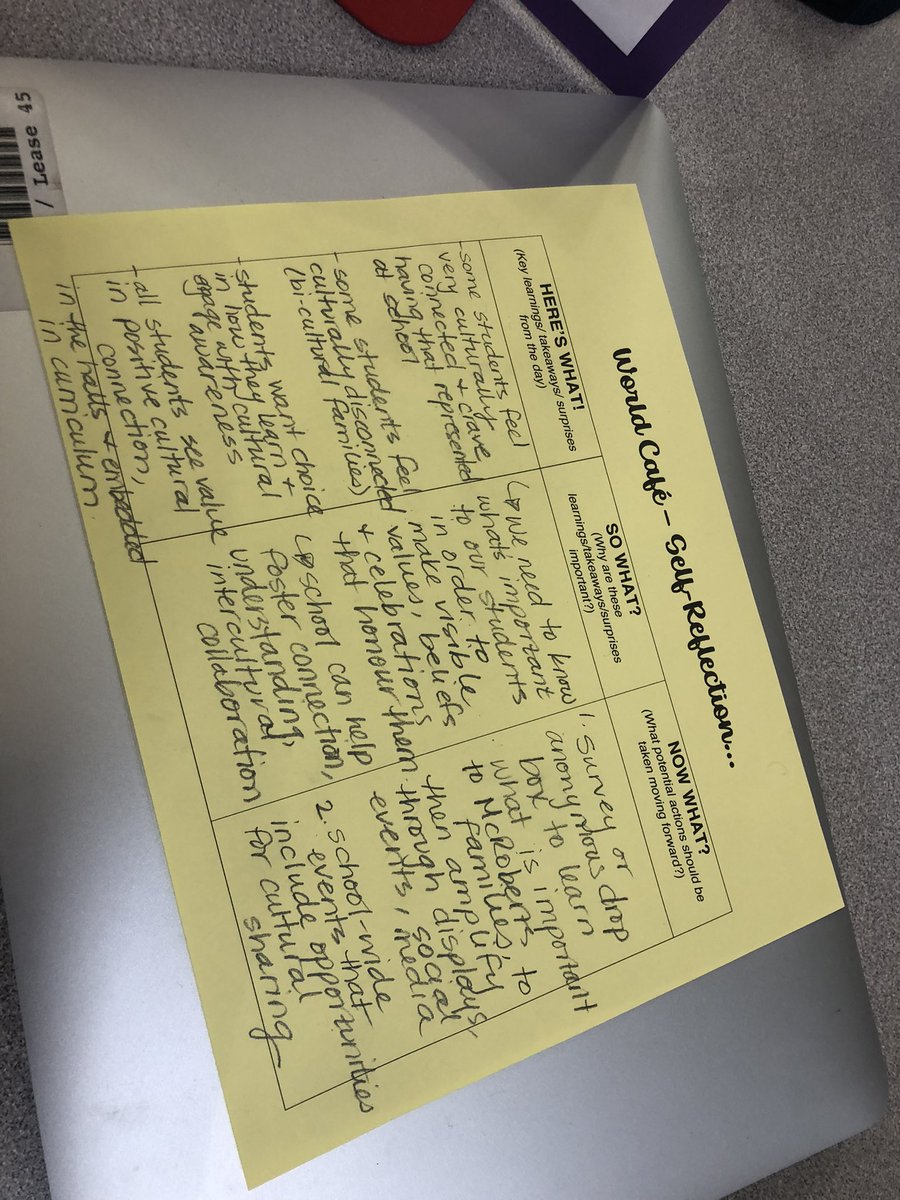 / Lease 45
World Café – Self-Reflection...
HERE'S WHAT!
(Key learnings/ takeaways/ surprises
from the day)
- some students feel
very culturally
connected + crave
having that represented
at school
- some students feel
culturally disconnected
(bi-cultural families)
- students want choice
in how they learn +
engage with cultural
awareness
- all students see value
in positive cultural
connection,
in the halls + embedded
in curriculum
SO WHAT?
(Why are these
learnings/takeaways/surprises
important?)
↳ We need to know
what's important
to our students
in order to
make visible
values, beliefs
+ celebrations
that honour them
↳ school can help
foster connection,
understanding,
intercultural
collaboration
NOW WHAT?
(What potential actions should be
taken moving forward?)
1. Survey or
anonymous drop
box to learn
what is important
to McRoberts
families, to
then amplify
through displays,
events, social
media
2. School-wide
events that
include opportunities
for cultural
sharing